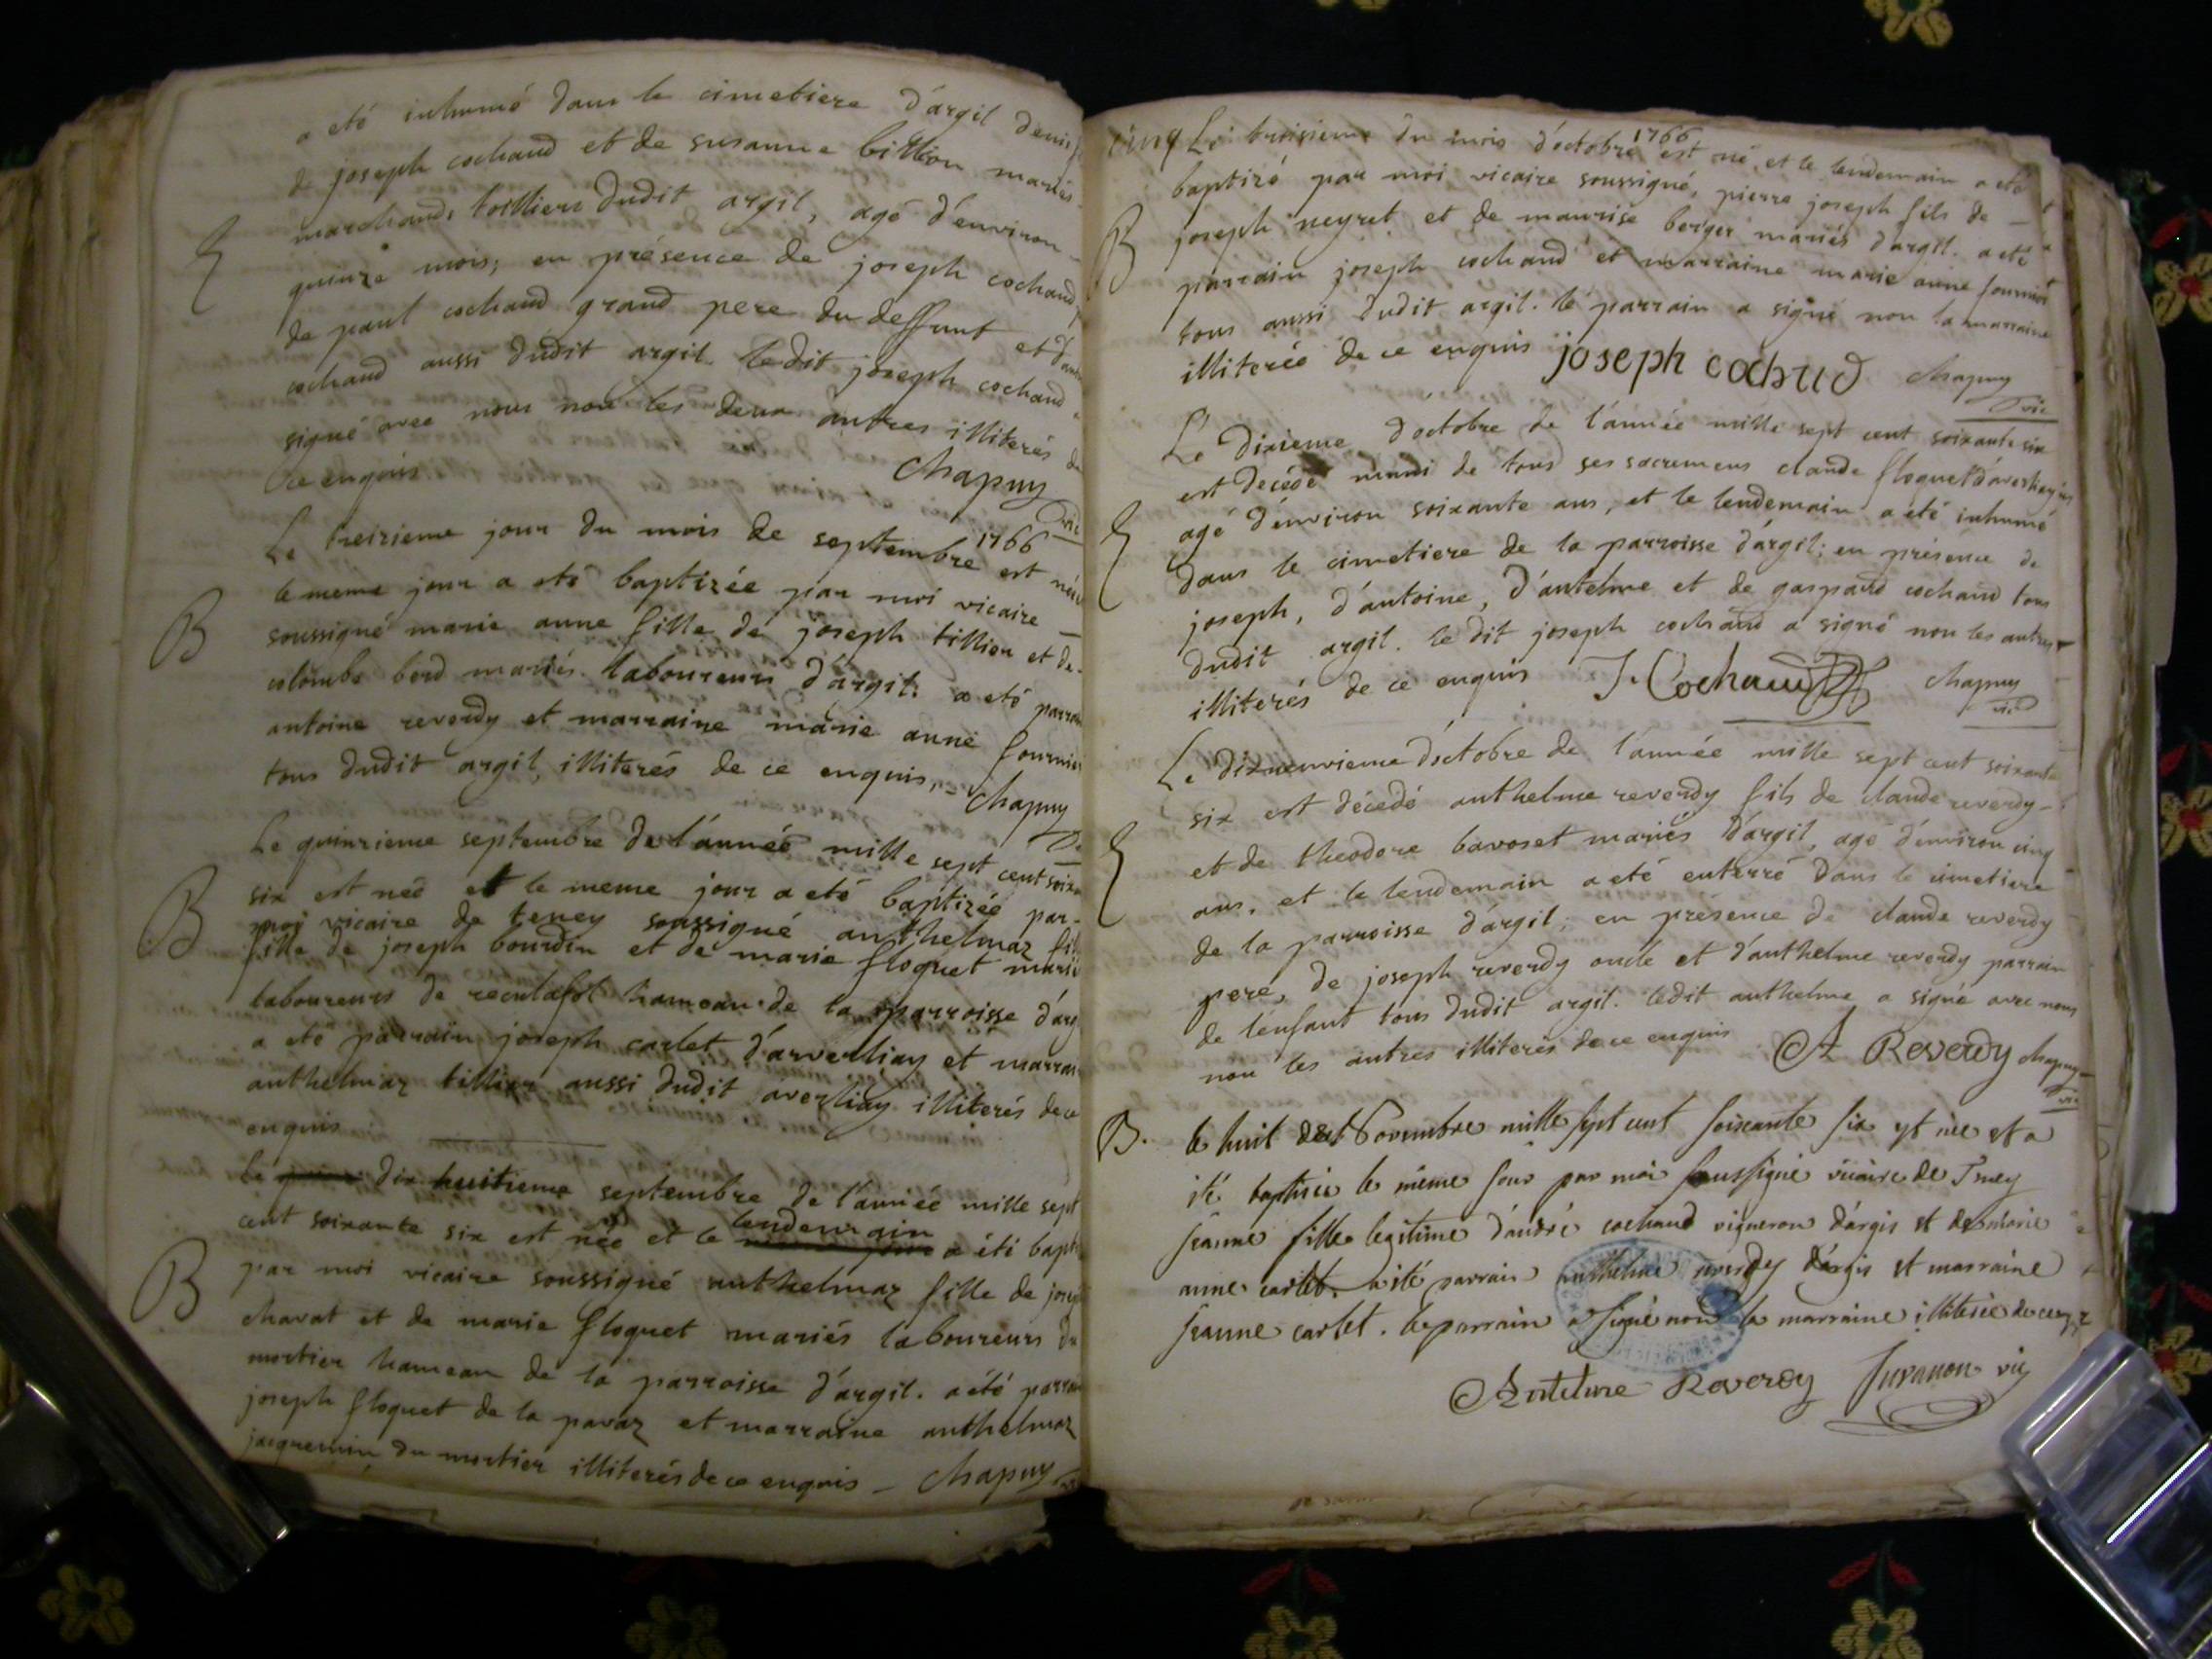 a eté inhumé dans le cimetiere d'argil denis
de joseph cochand et de susanne billion mariés
marchands toilliers dudit argil, agé d'environ
quinze mois; en présence de joseph cochand,
de paul cochand grand pere du deffunt et d'
cochand aussi dudit argil. ledit joseph cochand a
signé avec nous non les deux autres illiterés de
ce enquis chapuy vic
Le treizieme jour du mois de septembre 1766 est née
le meme jour a eté baptizée par moi vicaire
B soussigné marie anne fille de joseph tillion et de
colombe bord mariés laboureurs d'argil. a eté parrain
antoine reverdy et marraine marie anne fournier
tous dudit argil, illiterés de ce enquis, - chapuy
Le quinzieme septembre de l'année mille sept cent soix
six est née et le meme jour a eté baptizée par
B moi vicaire de teney soussigné anthelmaz fil
fille de joseph bourdin et de marie floquet mariés
laboureurs de reculafol hameau de la parroisse d'arg
a eté parrain joseph carlet d'arverliay et marrai
anthelmaz tillier aussi dudit averliay illiterés de ce
enquis
Le dix huitieme septembre de l'année mille sept
cent soixante six est née et le lendemain a été bapt
B par moi vicaire soussigné anthelmaz fille de josep
charat et de marie floquet mariés laboureurs du
mortier hameau de la parroisse d'argil. a été parrain
joseph floquet de la pavaz et marraine anthelmaz
jacquemin du mortier illiterés de ce enquis - chapuy
cinq Le troisieme du mois d'octobre 1766 est né et le lendemain a eté
baptizé par moi vicaire soussigné, pierre joseph fils de
B joseph neyret et de maurise berger mariés d'argil. a eté
parrain joseph cochand et marraine marie anne fournier
tous aussi dudit argil. le parrain a signé non la marraine
illiterée de ce enquis joseph cochud chapuy vic
Le dixieme d'octobre de l'année mille sept cent soixante six
est décedé muni de tous ses sacremens claude floquet d'averliay
agé d'environ soixante ans, et le lendemain a été inhumé
dans le cimetiere de la parroisse d'argil; en présence de
joseph, d'antoine, d'antelme et de gaspard cochand tous
dudit argil. le dit joseph cochand a signé non les autres
illiterés de ce enquis J. Cochaud chapuy vic
Le dixneuvieme d'octobre de l'année mille sept cent soixante
six est décedé anthelme reverdy fils de claude reverdy
et de theodore bavoset mariés d'argil, agé d'environ cinq
ans, et le lendemain a eté enterré dans le cimetiere
de la parroisse d'argil; en présence de claude reverdy
pere, de joseph reverdy oncle et d'anthelme reverdy parrain
de l'enfant tous dudit argil. ledit anthelme a signé avec nous
non les autres illiterés de ce enquis A Reverdy chapuy vic
B. le huit Novembre mille sept cent soixante six est née et a
été baptisée le même jour par moi soussigné vicaire de Teney
jeanne fille legitime d'andré cochand vigneron d'argis et de marie
anne carlet. a été parrain anthelme reverdy d'argis et marraine
jeanne carlet. le parrain a signé non la marraine illiterée de ce enq
Antelme Reverdy Juvanon vic